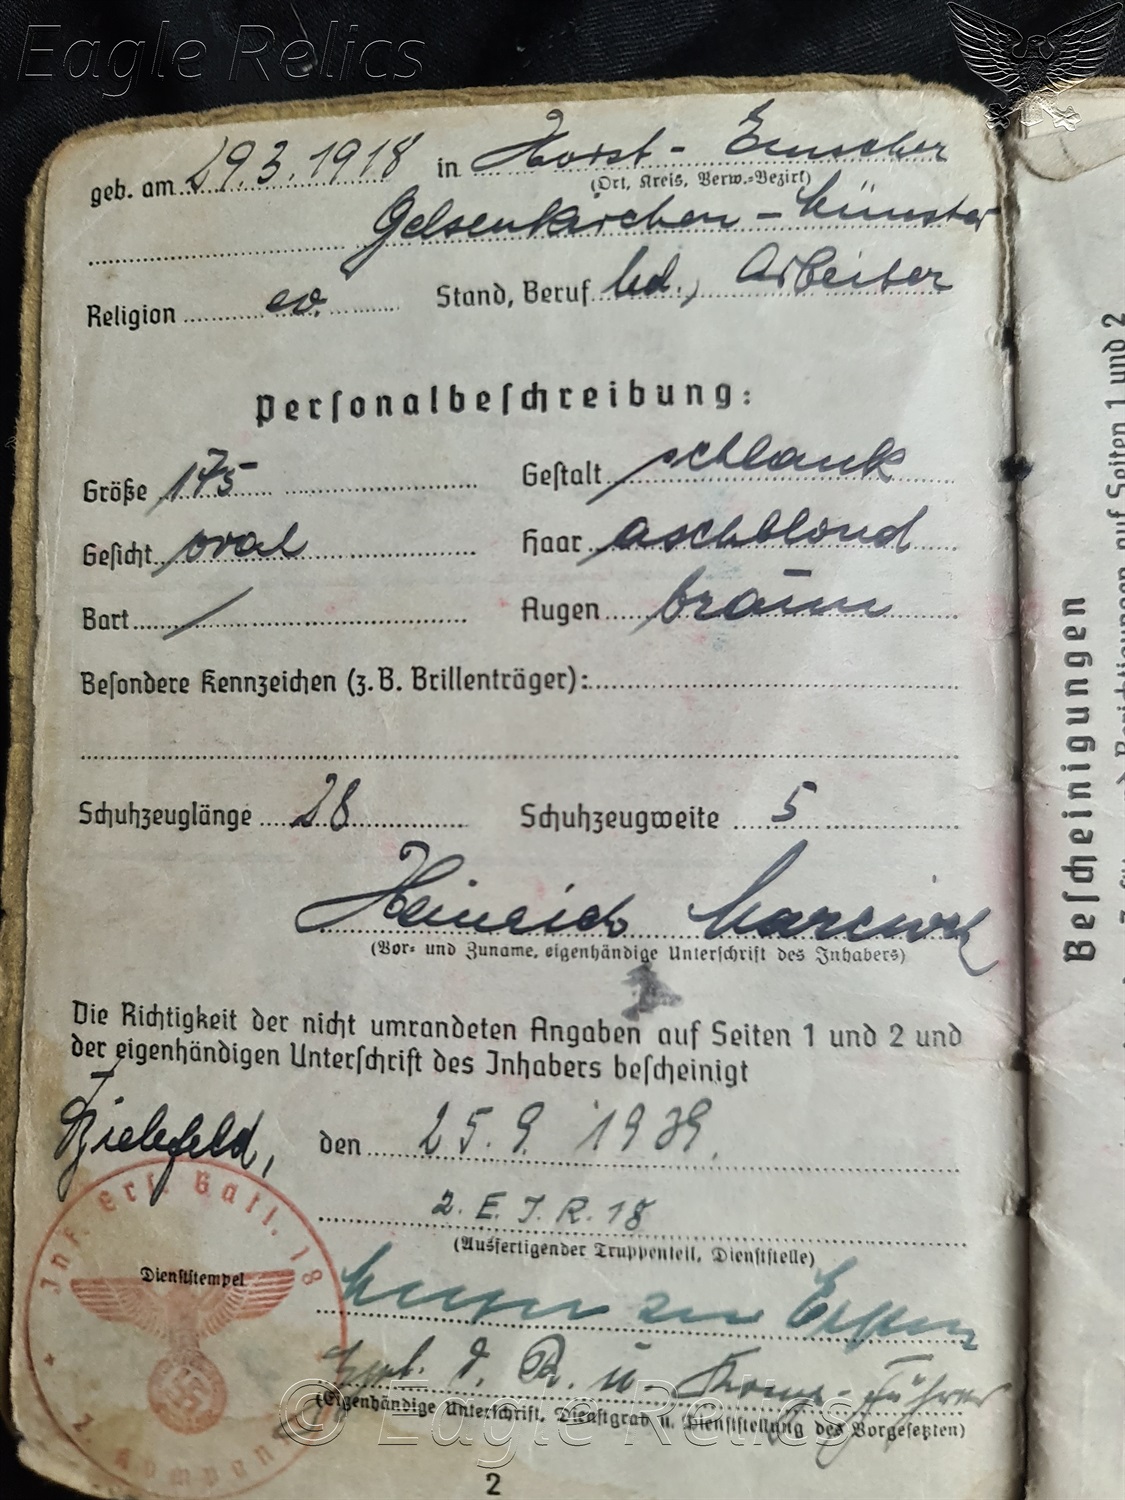 Eagle Relics
geb. am 29.3.1918 in Horst - Emscher
(Ort, Kreis, Verw.-Bezirk)
Gelsenkirchen - Münster
Religion ev. Stand, Beruf led., Arbeiter
Personalbeschreibung:
Größe 175 Gestalt schlank
Gesicht oval Haar aschblond
Bart / Augen braun
Besondere Kennzeichen (z. B. Brillenträger):
Schuhzeuglänge 28 Schuhzeugweite 5
Heinrich
(Vor- und Zuname, eigenhändige Unterschrift des Inhabers)
Die Richtigkeit der nicht umrandeten Angaben auf Seiten 1 und 2 und
der eigenhändigen Unterschrift des Inhabers bescheinigt
Bielefeld, den 25.9.1939.
2. E. J. R. 18
(Ausfertigender Truppenteil, Dienststelle)
Inf. Ers. Batl. 18
Dienststempel
2. Kompanie
Hptl. d. R. u. Komp.-Führer
(Eigenhändige Unterschrift, Dienstgrad u. Dienststellung des Vorgesetzten)
© Eagle Relics
2
Bescheinigungen
auf Seiten 1 und 2